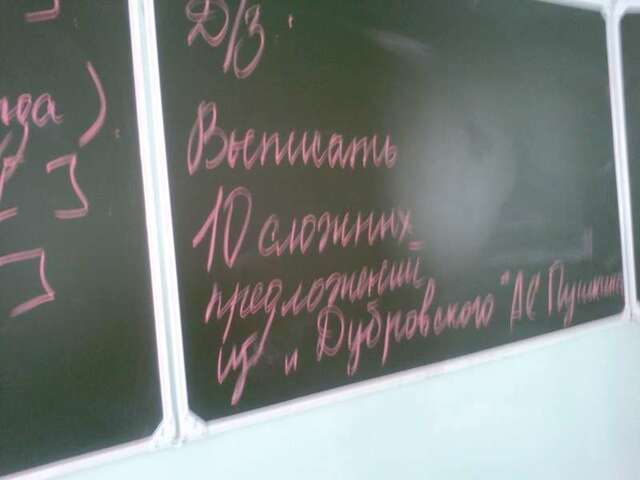 да).
]
]
Д/З.
Выписать
10 сложных
предложений
из "Дубровского" АС Пушкина